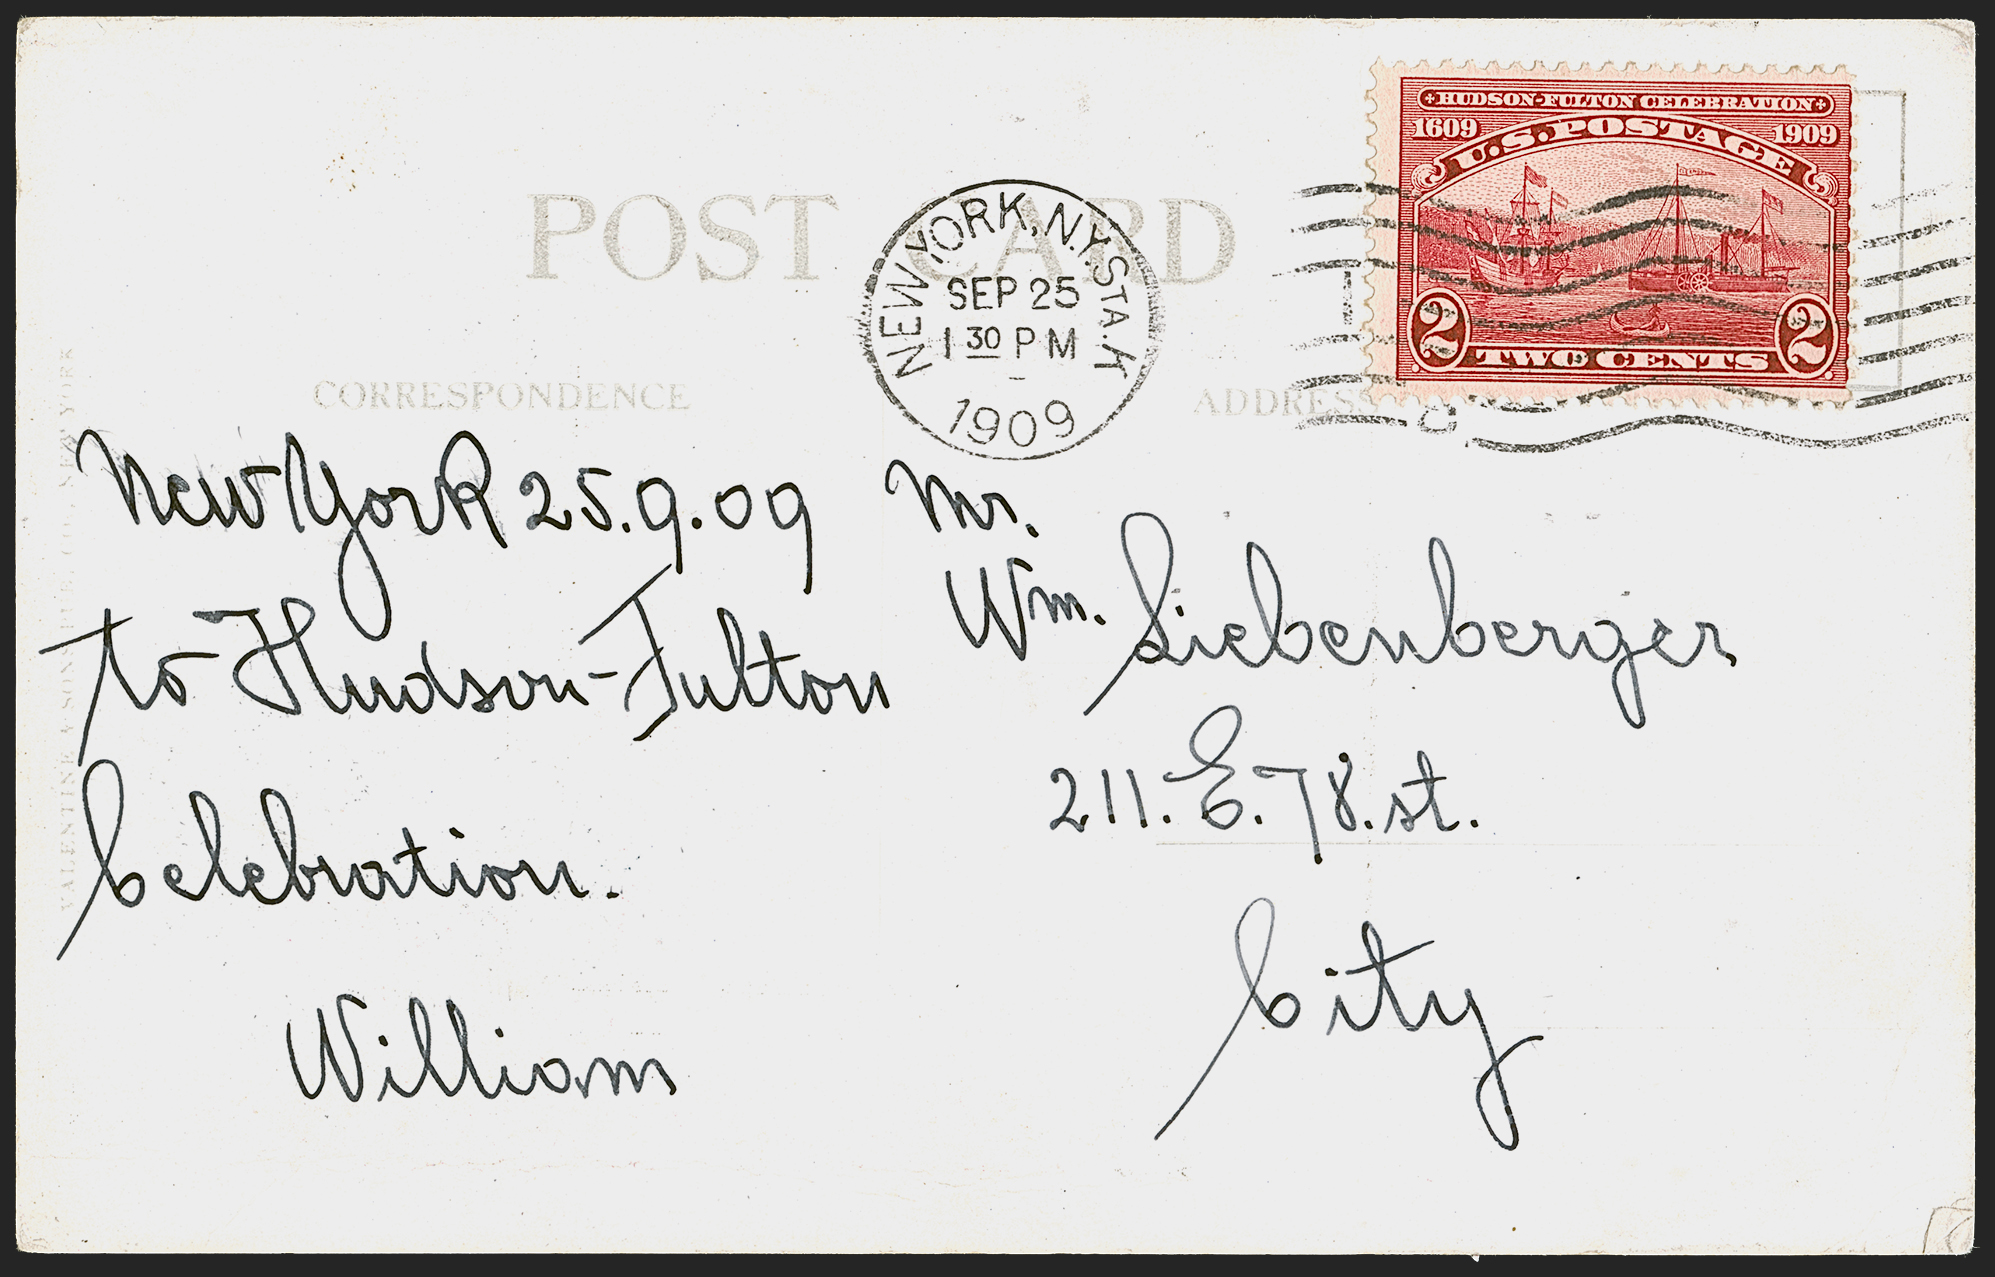 HUDSON-FULTON CELEBRATION
1609 1909
U.S. POSTAGE
2 2
TWO CENTS
POST CARD
NEW YORK, N.Y. STA. K
SEP 25
1 30 PM
1909
CORRESPONDENCE
ADDRESS
New York 25.9.09
to Hudson-Fulton
Celebration.
William
Mr.
Wm. Liebenberger
211. E. 78. st.
City